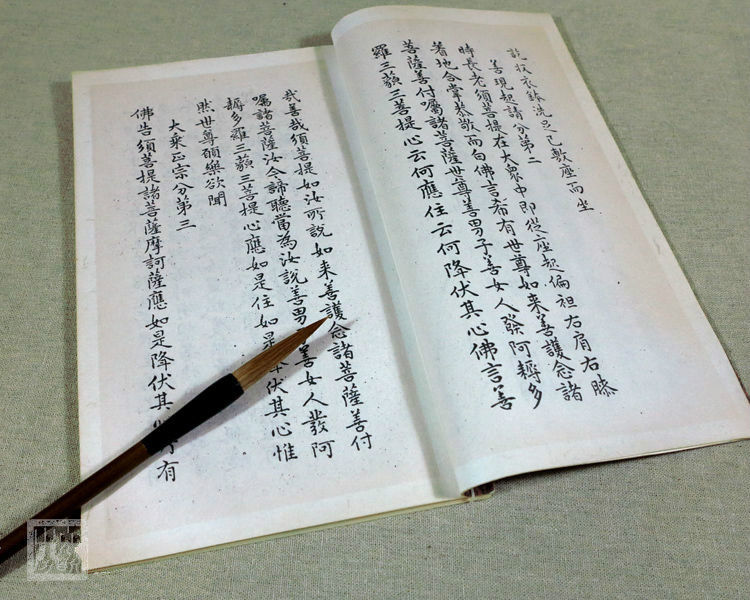 訖收衣鉢洗足已敷座而坐
善現起請分第二
時長老須菩提在大眾中即從座起偏袒右肩右膝
着地合掌恭敬而白佛言希有世尊如来善護念諸
菩薩善付囑諸菩薩世尊善男子善女人發阿耨多
羅三藐三菩提心云何應住云何降伏其心佛言善
哉善哉須菩提如汝所說如来善護念諸菩薩善付
囑諸菩薩汝今諦聽當為汝說善男善女人發阿
耨多羅三藐三菩提心應如是住如是伏其心惟
然世尊願樂欲聞
大乘正宗分第三
佛告須菩提諸菩薩摩訶薩應如是降伏其心有